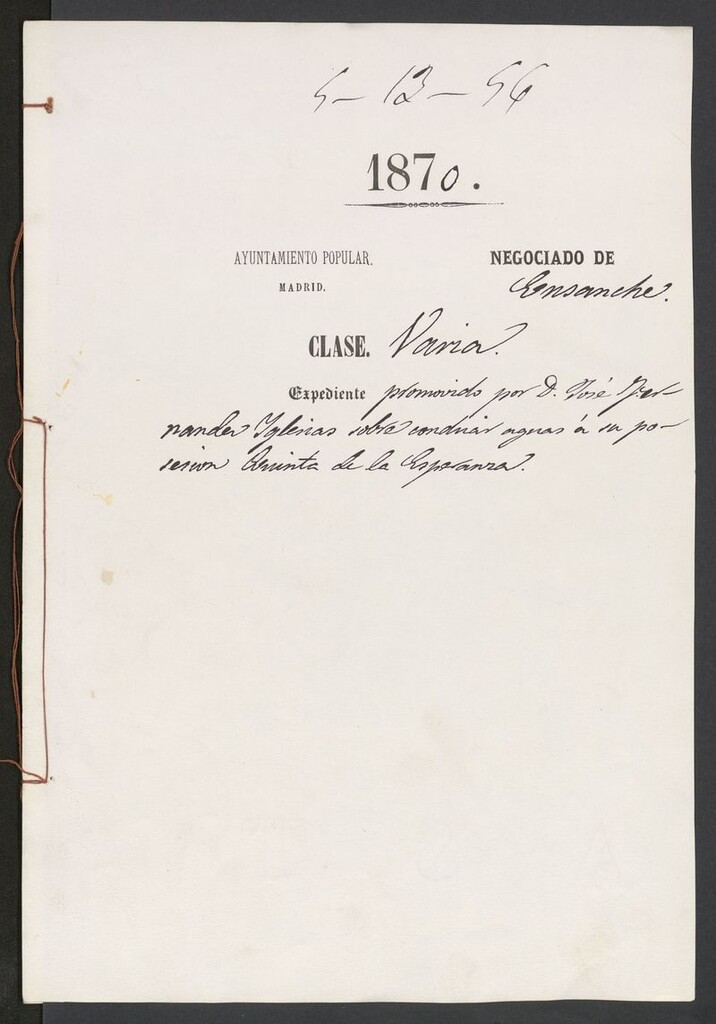 5 - 13 - 56
1870.
AYUNTAMIENTO POPULAR.
MADRID.
NEGOCIADO DE
Ensanche.
CLASE. Varia.
Expediente promovido por D. José Fer-
nandez Iglesias sobre conducir aguas á su po-
sesion Quinta de la Esperanza.